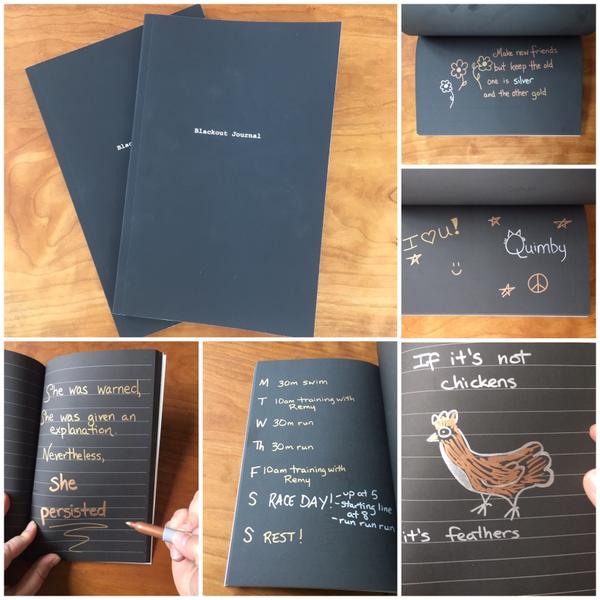 Blackout Journal
Blac
Make new friends
but keep the old
one is silver
and the other gold
I ♡ U!
Quimby
She was warned,
She was given an
explanation.
Nevertheless,
She
persisted
M 30m swim
T 10am training with
Remy
W 30m run
Th 30m run
F 10am training with
Remy
S RACE DAY! - up at 5
- starting line
at 8
- run run run
S REST!
If it's not
chickens
it's feathers